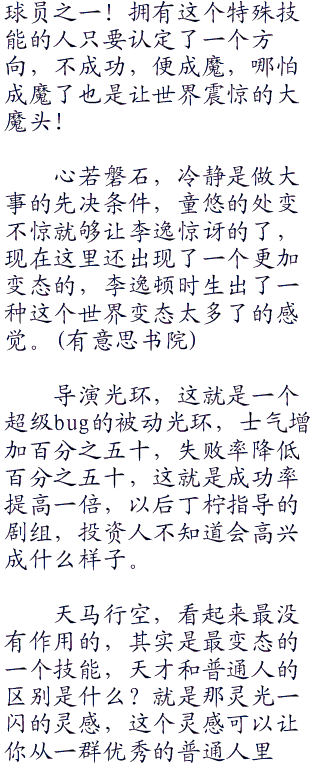 球员之一！拥有这个特殊技
能的人只要认定了一个方
向，不成功，便成魔，哪怕
成魔了也是让世界震惊的大
魔头！
心若磐石，冷静是做大
事的先决条件，童悠的处变
不惊就够让李逸惊讶的了，
现在这里还出现了一个更加
变态的，李逸顿时生出了一
种这个世界变态太多了的感
觉。(有意思书院)
导演光环，这就是一个
超级bug的被动光环，士气增
加百分之五十，失败率降低
百分之五十，这就是成功率
提高一倍，以后丁柠指导的
剧组，投资人不知道会高兴
成什么样子。
天马行空，看起来最没
有作用的，其实是最变态的
一个技能，天才和普通人的
区别是什么？就是那灵光一
闪的灵感，这个灵感可以让
你从一群优秀的普通人里